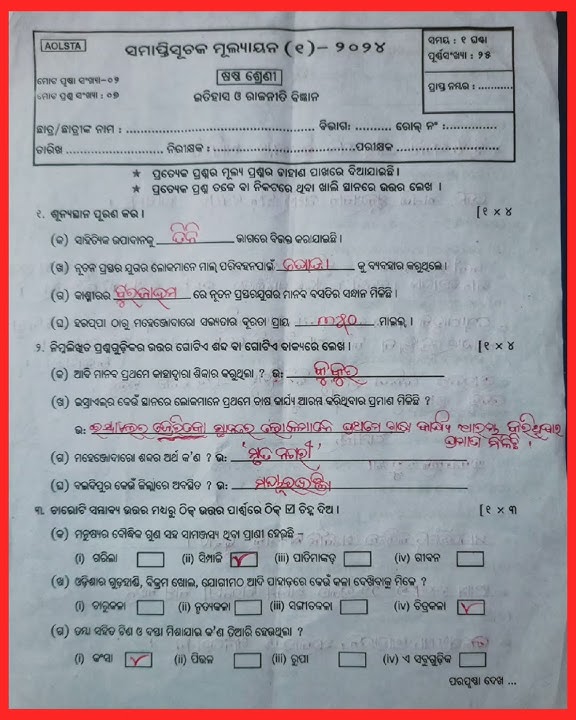 AOLSTA
ସମାପ୍ତିସୂଚକ ମୂଲ୍ୟାୟନ (୧) - ୨୦୨୪
ସମୟ : ୧ ଘଣ୍ଟା
ପୂର୍ଣ୍ଣସଂଖ୍ୟା : ୨୫
ମୋଟ ପୃଷ୍ଠା ସଂଖ୍ୟା-୦୨
ଷଷ୍ଠ ଶ୍ରେଣୀ
ମୋଟ ପ୍ରଶ୍ନ ସଂଖ୍ୟା : ୦୭
ଇତିହାସ ଓ ରାଜନୀତି ବିଜ୍ଞାନ
ପ୍ରାପ୍ତ ନମ୍ବର : ...........
ଛାତ୍ର/ଛାତ୍ରୀଙ୍କ ନାମ : ........................ ବିଭାଗ: .......... ରୋଲ୍ ନଂ :..............
ତାରିଖ ........................ ନିରୀକ୍ଷକ : ........................ପରୀକ୍ଷକ ........................
★ ପ୍ରତ୍ୟେକ ପ୍ରଶ୍ନର ମୂଲ୍ୟ ପ୍ରଶ୍ନର ଡାହାଣ ପାଖରେ ଦିଆଯାଇଛି ।
★ ପ୍ରତ୍ୟେକ ପ୍ରଶ୍ନ ତଳେ ବା ନିକଟରେ ଥିବା ଖାଲି ସ୍ଥାନରେ ଉତ୍ତର ଲେଖ ।
୧. ଶୂନ୍ୟସ୍ଥାନ ପୂରଣ କର । [୧ × ୪
(କ) ସାହିତ୍ୟିକ ଉପାଦାନକୁ ତିନି ଭାଗରେ ବିଭକ୍ତ କରାଯାଇଛି ।
(ଖ) ନୂତନ ପ୍ରସ୍ତର ଯୁଗର ଲୋକମାନେ ମାଲ୍ ପରିବହନପାଇଁ କୁ ବ୍ୟବହାର କରୁଥିଲେ ।
(ଗ) କାଶ୍ମୀରର ବୁରଜାହମ ରେ ନୂତନ ପ୍ରସ୍ତରଯୁଗର ମାନବ ବସତିର ସନ୍ଧାନ ମିଳିଛି ।
(ଘ) ହରପ୍ପା ଠାରୁ ମହେଞ୍ଜୋଦାରୋ ସଭ୍ୟତାର ଦୂରତା ପ୍ରାୟ ୩୫୦ ମାଇଲ୍ ।
୨. ନିମ୍ନଲିଖିତ ପ୍ରଶ୍ନଗୁଡ଼ିକର ଉତ୍ତର ଗୋଟିଏ ଶବ୍ଦ ବା ଗୋଟିଏ ବାକ୍ୟରେ ଲେଖ । [୧ × ୪
(କ) ଆଦି ମାନବ ପ୍ରଥମେ କାହାଦ୍ୱାରା ଶିକାର କରୁଥିଲା ? ଉ: କୁକୁର
(ଖ) ଇସ୍ରାଏଲ୍‌ର କେଉଁ ସ୍ଥାନରେ ଲୋକମାନେ ପ୍ରଥମେ ଚାଷ କାର୍ଯ୍ୟ ଆରମ୍ଭ କରିଥିବାର ପ୍ରମାଣ ମିଳିଛି ?
ଉ: ଇସ୍ରାଏଲର ଜେରିକୋ ସ୍ଥାନରେ ଲୋକମାନେ ପ୍ରଥମେ ଚାଷ କାର୍ଯ୍ୟ ଆରମ୍ଭ କରିଥିବାର
ପ୍ରମାଣ ମିଳିଛି ।
(ଗ) ମହେଞ୍ଜୋଦାରୋ ଶବ୍ଦର ଅର୍ଥ କ'ଣ ? ଉ: 'ମୃତ ନଗରୀ'
(ଘ) ବଇଦିପୁର କେଉଁ ଜିଲ୍ଲାରେ ଅବସ୍ଥିତ ? ଉ: ମୟୂରଭଞ୍ଜ
୩. ଚାରୋଟି ସମ୍ଭାବ୍ୟ ଉତ୍ତର ମଧ୍ୟରୁ ଠିକ୍ ଉତ୍ତର ପାର୍ଶ୍ୱରେ ଠିକ୍ ☑ ଚିହ୍ନ ଦିଅ । [୧ × ୩
(କ) ମନୁଷ୍ୟର ବୌଦ୍ଧିକ ଗୁଣ ସହ ସାମଞ୍ଜସ୍ୟ ଥିବା ପ୍ରାଣୀ ହେଲାଟି –
(i) ଗରିଲା (ii) ସିମ୍ପାଞ୍ଜି ✓ (iii) ପାତିମାଙ୍କଡ଼ (iv) ଗୀବନ
(ଖ) ଓଡ଼ିଶାର ଗୁଡ଼ହାଣ୍ଡି, ବିକ୍ରମ ଖୋଲ, ଯୋଗୀମଠ ଆଦି ପାହାଡ଼ରେ କେଉଁ କଳା ଦେଖିବାକୁ ମିଳେ ?
(i) ଚାରୁକଳା (ii) ନୃତ୍ୟକଳା (iii) ସଙ୍ଗୀତକଳା (iv) ଚିତ୍ରକଳା ✓
(ଗ) ତମ୍ବା ସହିତ ଟିଣ ଓ ଦସ୍ତା ମିଶାଯାଇ କ'ଣ ତିଆରି ହେଉଥିଲା ?
(i) କଂସା ✓ (ii) ପିତ୍ତଳ (iii) ରୂପା (iv) ଏ ସବୁଗୁଡ଼ିକ
ପରପୃଷ୍ଠା ଦେଖ ...